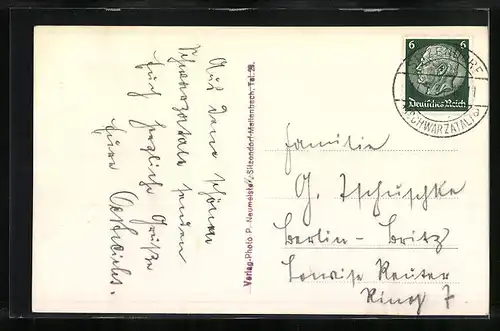 Aus dem schönen
Schwarzatale senden
Euch herzliche Grüße
Eure
Verlag-Photo P. Neumeister, Sitzendorf-Mellenbach, Tel. 29.
6 6
Deutsches Reich
(SCHWARZATAL)
Familie
G. Tschuschke
Berlin - Britz
Lowise Reuter
Ring 7